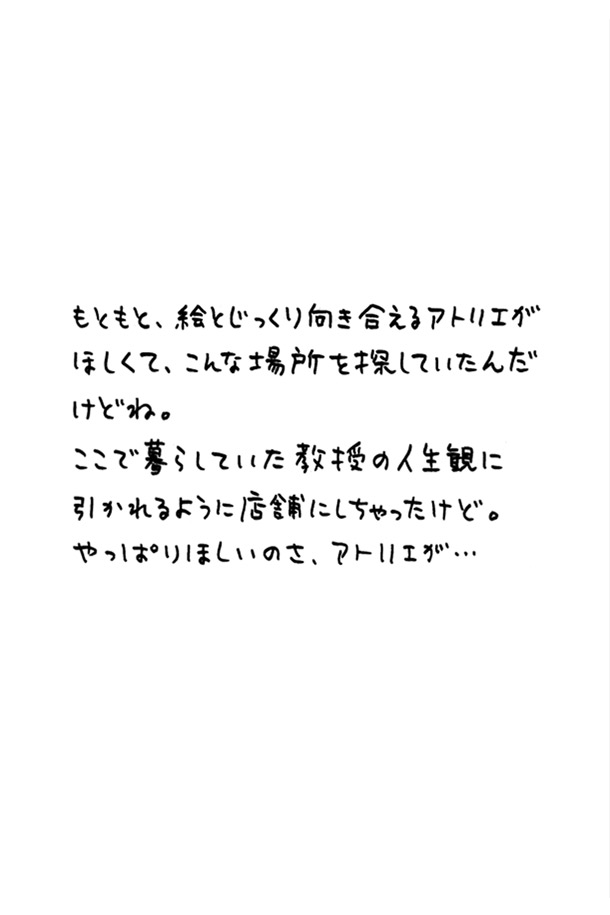 もともと、絵とじっくり向き合えるアトリエが
ほしくて、こんな場所を探していたんだ
けどね。
ここで暮らしていた教授の人生観に
引かれるように店舗にしちゃったけど。
やっぱりほしいのさ、アトリエが…